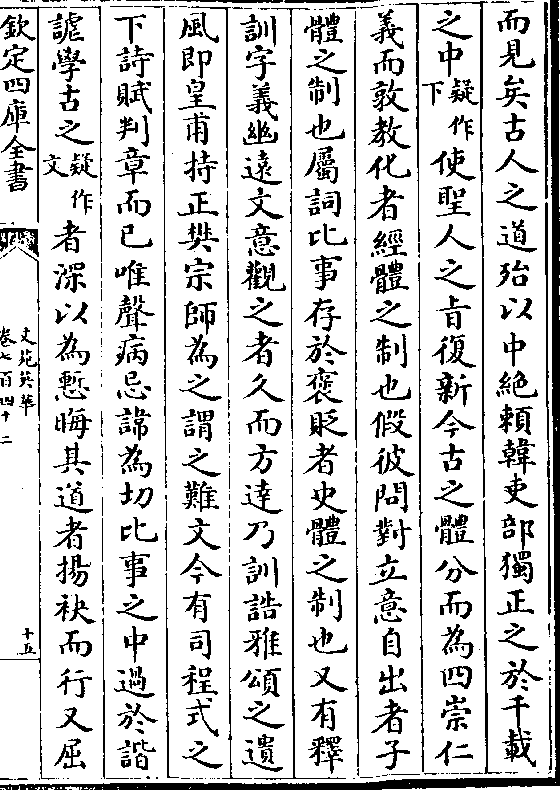 而見矣古人之道殆以中絶頼韓吏部獨正之於千載
之中疑作下使聖人之旨復新今古之體分而為四崇仁
義而敦教化者經體之制也假彼問對立意自出者子
體之制也屬詞比事存於褒貶者史體之制也又有釋
訓字義幽遠文意觀之者久而方達乃訓誥雅頌之遺
風即皇甫持正樊宗師為之謂之難文今有司程式之
下詩賦判章而已唯聲病忌諱為切比事之中過於諧
謔學古之疑作文者深以為慙晦其道者揚袂而行又屈
欽定四庫全書
文苑英華
卷七百四十二
十五